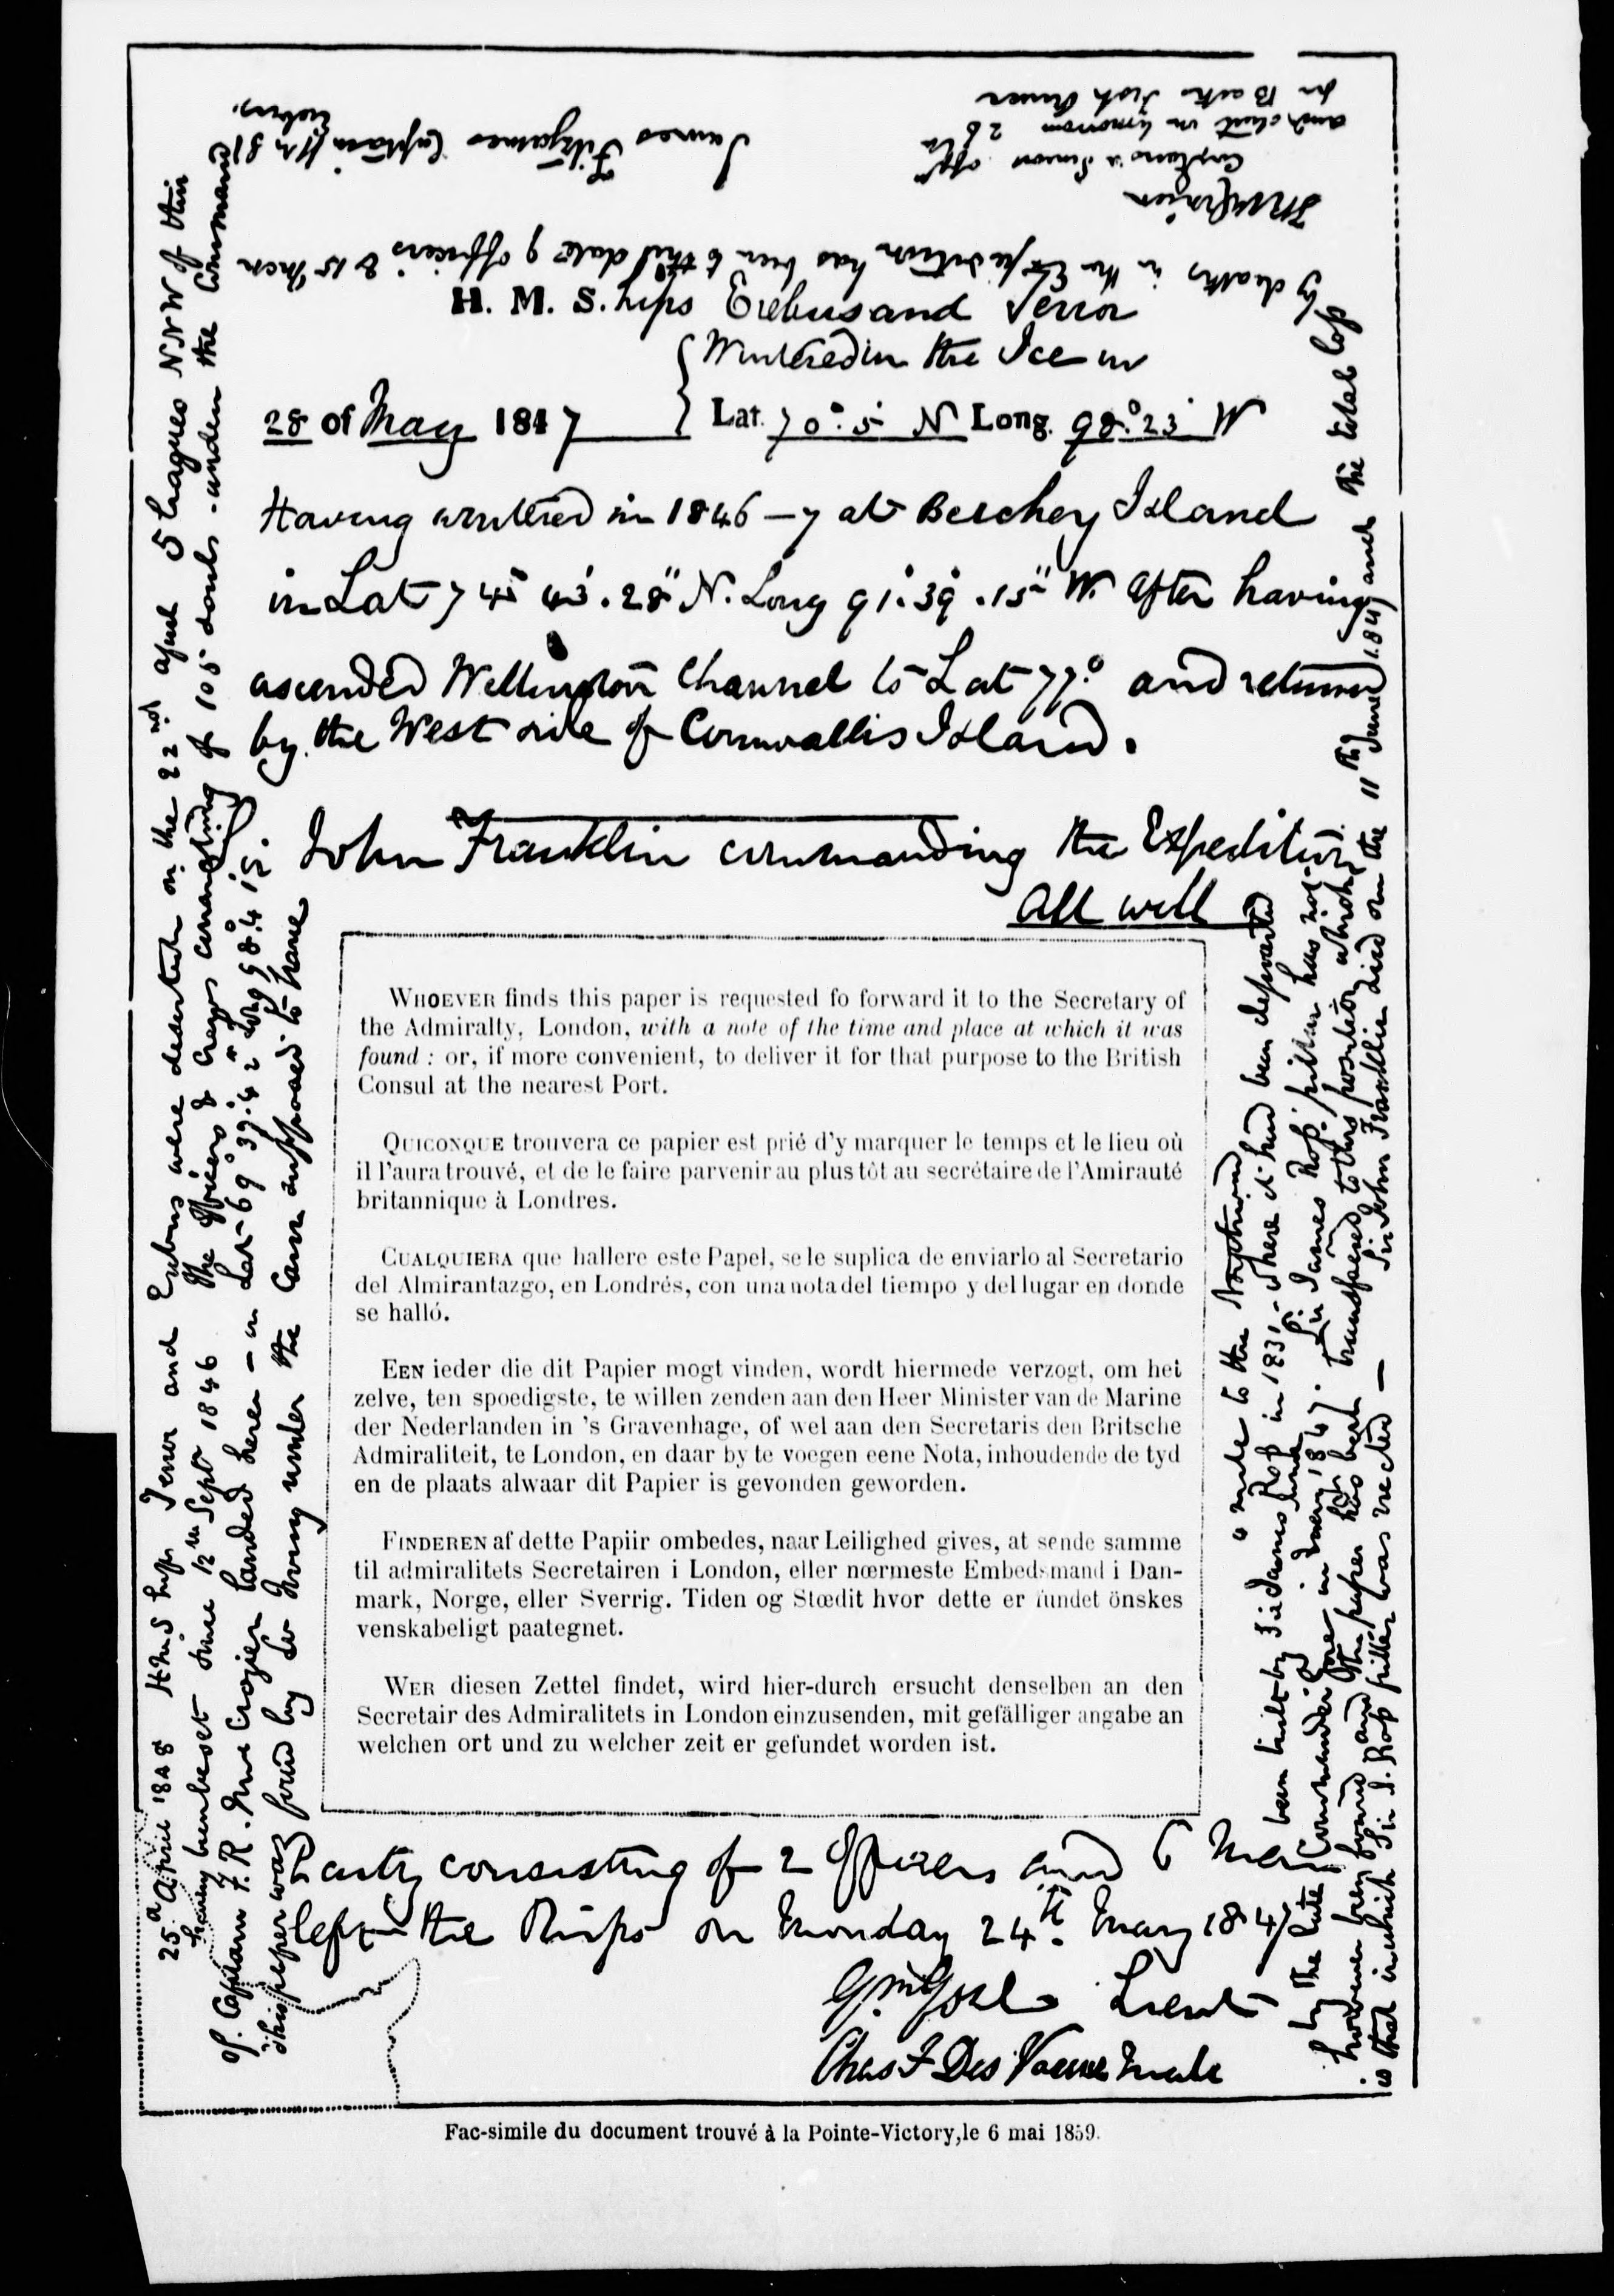 H. M. S. hips Erebus and Terror
Wintered in the Ice in
28 of May 1847 Lat. 70°. 5' N Long. 98°. 23' W
Having wintered in 1846–7 at Beechey Island
in Lat 74° 43'. 28" N. Long 91°. 39'. 15" W. After having
ascended Wellington Channel to Lat 77.° and returned
by the West side of Cornwallis Island.
John Franklin commanding the Expedition
All well
WHOEVER finds this paper is requested fo forward it to the Secretary of
the Admiralty, London, with a note of the time and place at which it was
found : or, if more convenient, to deliver it for that purpose to the British
Consul at the nearest Port.
QUICONQUE trouvera ce papier est prié d'y marquer le temps et le lieu où
il l'aura trouvé, et de le faire parvenir au plus tôt au secrétaire de l'Amirauté
britannique à Londres.
CUALQUIERA que hallere este Papel, se le suplica de enviarlo al Secretario
del Almirantazgo, en Londrés, con una nota del tiempo y del lugar en donde
se halló.
EEN ieder die dit Papier mogt vinden, wordt hiermede verzogt, om het
zelve, ten spoedigste, te willen zenden aan den Heer Minister van de Marine
der Nederlanden in 's Gravenhage, of wel aan den Secretaris den Britsche
Admiraliteit, te London, en daar by te voegen eene Nota, inhoudende de tyd
en de plaats alwaar dit Papier is gevonden geworden.
FINDEREN af dette Papiir ombedes, naar Leilighed gives, at sende samme
til admiralitets Secretairen i London, eller nœrmeste Embedsmand i Dan-
mark, Norge, eller Sverrig. Tiden og Stœdit hvor dette er fundet önskes
venskabeligt paategnet.
WER diesen Zettel findet, wird hier-durch ersucht denselben an den
Secretair des Admiralitets in London einzusenden, mit gefälliger angabe an
welchen ort und zu welcher zeit er gefundet worden ist.
Party consisting of 2 Officers and 6 Men
left the Ships on Monday 24th. May 1847
Gm Gore Lieut
Chas F Des Voeux Mate
25 April 1848 HMShips Terror and Erebus were deserted on the 22nd April 5 Leagues NNW of this
having been beset since 12th Sept 1846 The Officers & Crews consisting of 105 souls - under the Command
of Captain F. R. M. Crozier landed here – in Lat 69° 37'. 42" Long 98°. 41'
This paper was found by Lt Irving under the Cairn supposed to have
been built by Sir James Ross in 1831 – where it had been deposited
4 miles to the Northward
by the late Commander Gore in May 1847. Sir James Ross' pillar has not
however been found and the paper has been transferred to this position which
is that in which Sir J. Ross pillar was erected – Sir John Franklin died on the 11th June 1847 and the total loss
by deaths in the Expedition has been to this date 9 officers & 15 Men
James Fitzjames Captain HMS Erebus.
FRMCrozier
Captain & Senior Offr
and start on tomorrow 26
for Backs Fish River
Fac-simile du document trouvé à la Pointe-Victory, le 6 mai 1859.